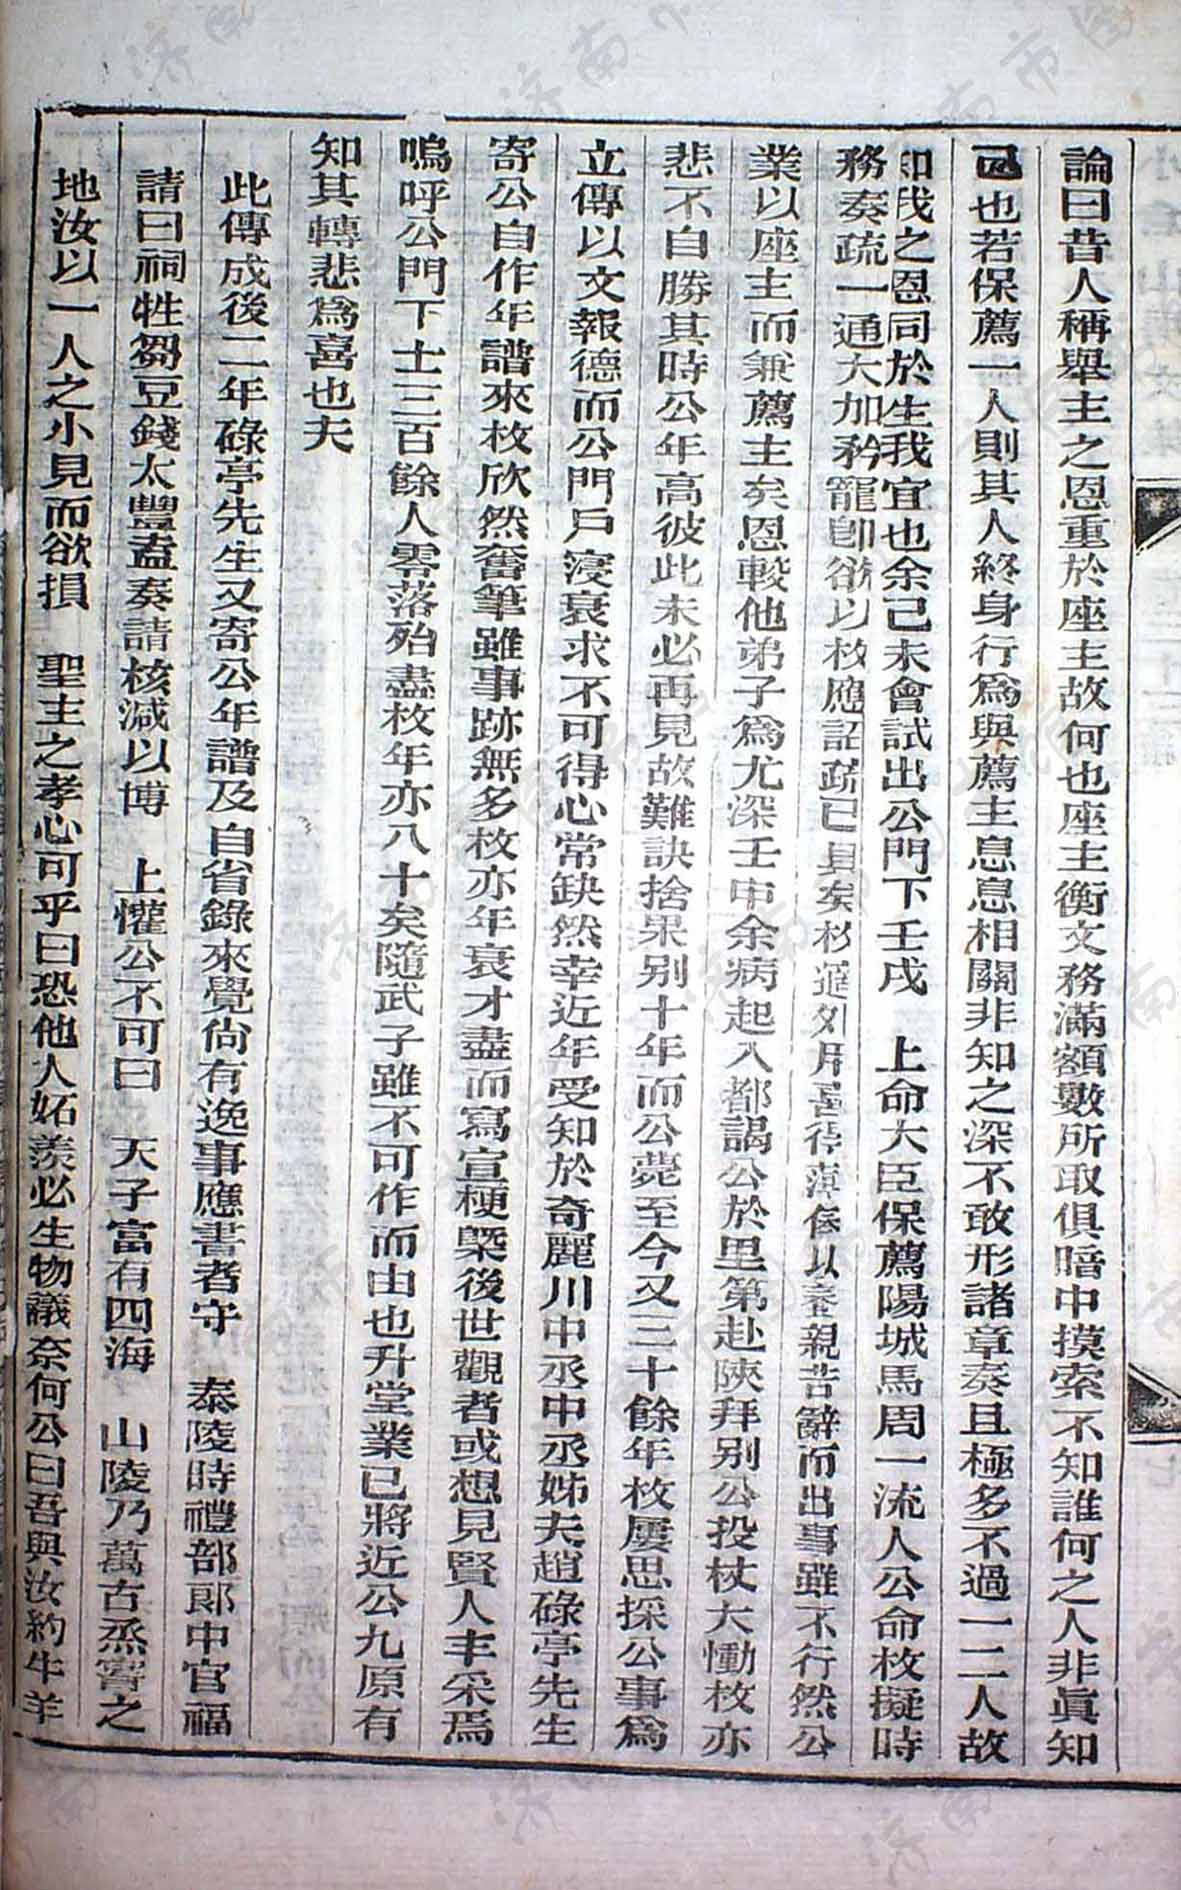 論曰昔人稱舉主之恩重於座主故何也座主衡文務滿額數所取俱暗中摸索不知誰何之人非眞知
己也若保薦一人則其人終身行爲與薦主息息相關非知之深不敢形諸章奏且極多不過一二人故
知我之恩同於生我宜也余己未會試出公門下壬戌　上命大臣保薦陽城馬周一流人公命枚擬時
務奏疏一通大加矜寵卽欲以枚應詔疏已具矣枚選外用喜得漙俸以養親苦辭而出事雖不行然公
業以座主而兼薦主矣恩較他弟子爲尤深壬申余病起入都謁公於里第赴陝拜别公投杖大慟枚亦
悲不自勝其時公年高彼此未必再見故難訣捨果别十年而公薨至今又三十餘年枚屢思採公事爲
立傳以文報德而公門戶寖衰求不可得心常缺然幸近年受知於奇麗川中丞中丞姊夫趙碌亭先生
寄公自作年譜來枚欣然奮筆雖事跡無多枚亦年衰才盡而寫宣梗槩後世觀者或想見賢人丰采焉
嗚呼公門下士三百餘人零落殆盡枚年亦八十矣隨武子雖不可作而由也升堂業已將近公九原有
知其轉悲爲喜也夫
此傳成後二年碌亭先生又寄公年譜及自省錄來覺尙有逸事應書者守　泰陵時禮部郎中官福
請曰祠牲芻豆錢太豐盍奏請核減以博　上懽公不可曰　天子富有四海　山陵乃萬古烝嘗之
地汝以一人之小見而欲損　聖主之孝心可乎曰恐他人妬羨必生物議奈何公曰吾與汝約牛羊